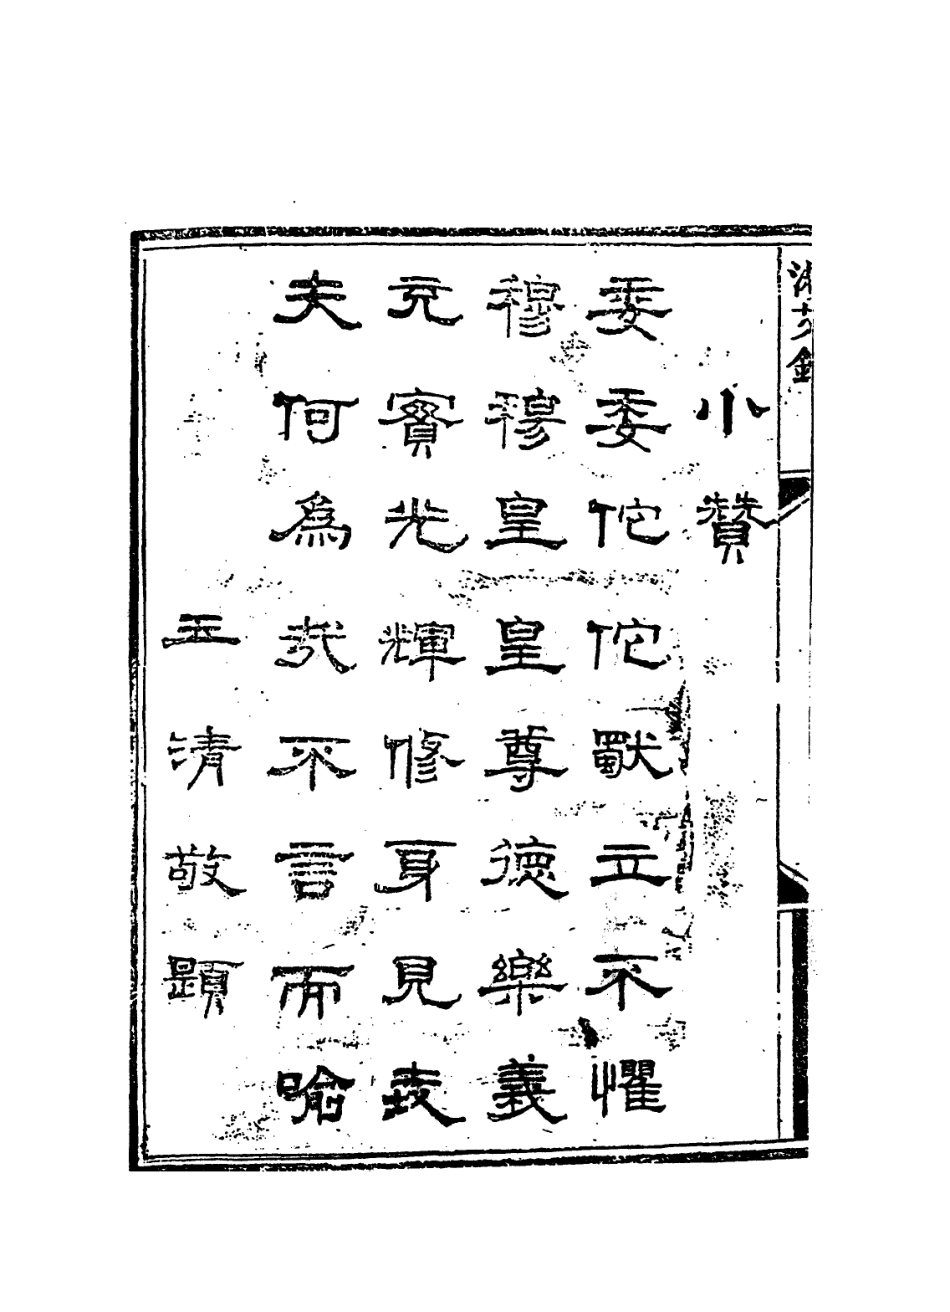 小贊
委委佗佗獨立不懼
穆穆皇皇尊德樂義
充實光輝修身見
夫何為哉不言而喻
王清敬題